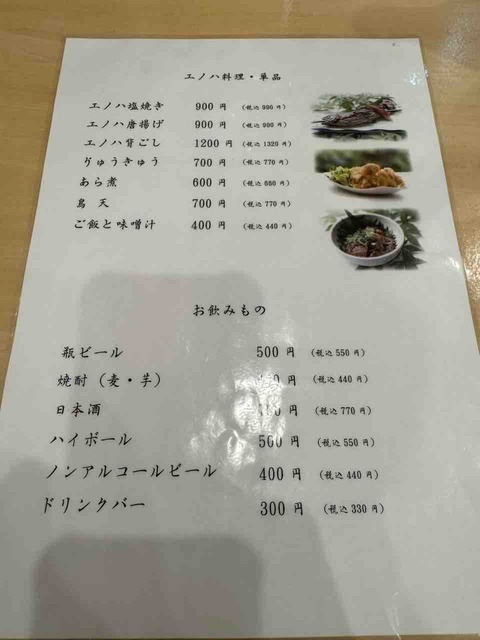 エノハ料理・単品
エノハ塩焼き 900 円 (税込 990 円)
エノハ唐揚げ 900 円 (税込 990 円)
エノハ背ごし 1200 円 (税込 1320 円)
りゅうきゅう 700 円 (税込 770 円)
あら煮 600 円 (税込 660 円)
鳥 天 700 円 (税込 770 円)
ご飯と味噌汁 400 円 (税込 440 円)
お飲みもの
瓶ビール 500 円 (税込 550 円)
焼酎(麦・芋) 円 (税込 440 円)
日本酒 円 (税込 770 円)
ハイボール 500 円 (税込 550 円)
ノンアルコールビール 400 円 (税込 440 円)
ドリンクバー 300 円 (税込 330 円)